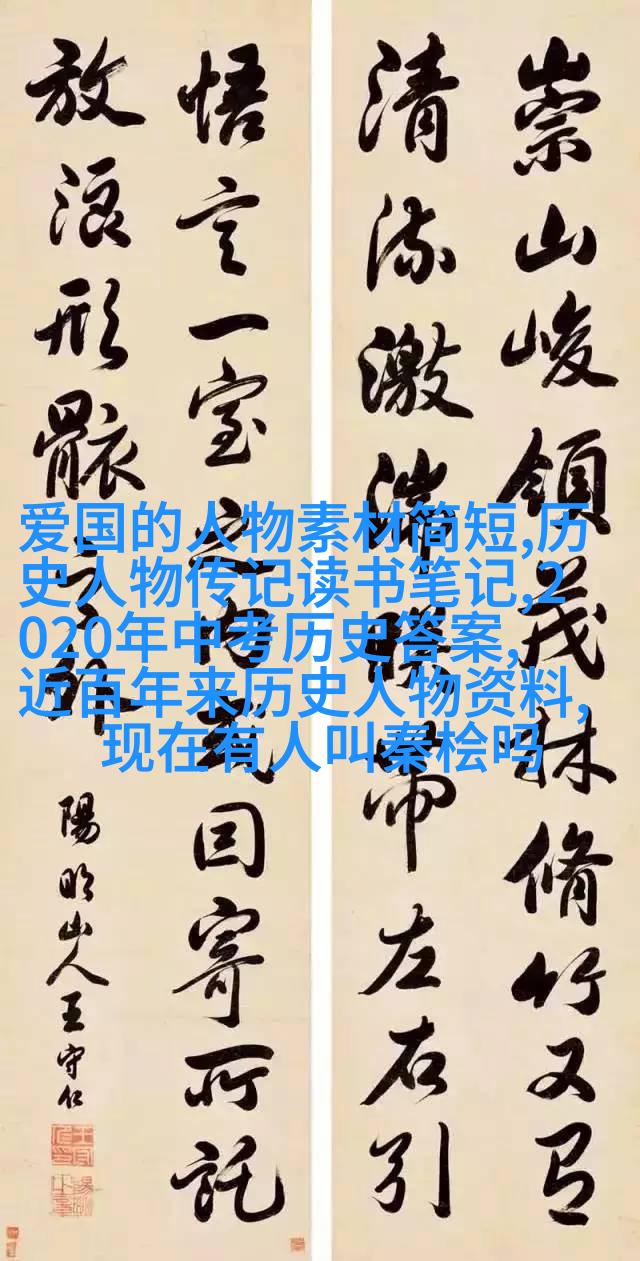 崇山峻領茂林脩竹又有
清流激湍暎帶左右引
悟言一室之内或因寄所託
放浪形骸之外
陽明山人王守仁
爱国的人物素材简短,历
史人物传记读书笔记,2
020年中考历史答案,
近百年来历史人物资料,
现在有人叫秦桧吗